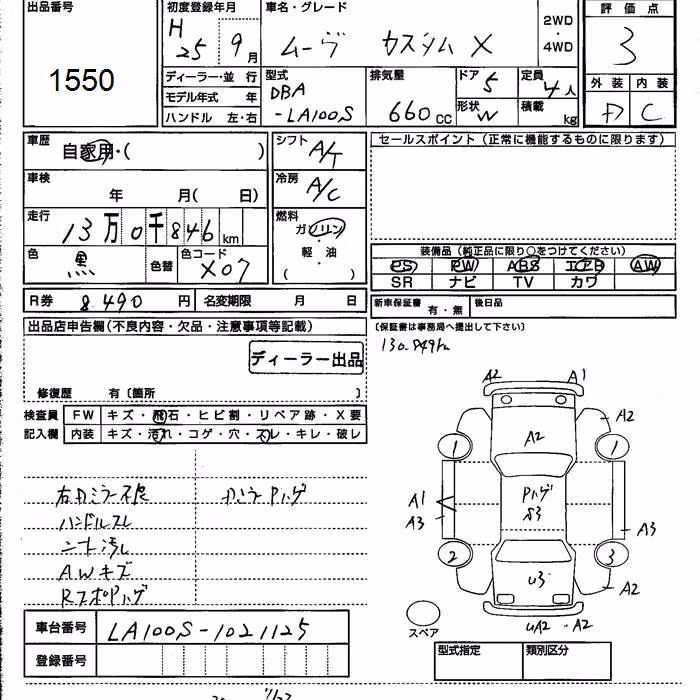 出品番号
1550
初度登録年月
H 25 9月
車名・グレード
ムーヴ カスタム X
2WD
・
4WD
評価点
3
外装 内装
D C
ディーラー・並行
モデル年式 年
ハンドル 左・右
型式
DBA
-LA100S
排気量
660cc
ドア 5
形状 W
定員
4人
積載
kg
車歴
自家用・( )
シフト
A/T
車検
年 月( 日)
冷房
A/C
走行
13万0千846km
燃料
ガソリン
軽油
( )
色
黒
色替
色コード
X07
セールスポイント(正常に機能するものに限ります)
装備品(純正品に限り○をつけてください)
PS PW ABS エアB AW
SR ナビ TV カワ
R券 8,490円
名変期限 月 日
新車保証書 有・無
後日品
(保証書は事務局へ提出して下さい)
130,849km
出品店申告欄(不良内容・欠品・注意事項等記載)
ディーラー出品
修復歴 有〔箇所 〕
検査員
記入欄
FW キズ・飛石・ヒビ割・リペア跡・X要
内装 キズ・汚れ・コゲ・穴・スレ・キレ・破レ
右Dミラー不良
ハンドルスレ
シート汚レ
A.Wキズ
A2 A1
A2
A2
1 1
A1
A3
A3
2 3
U3
A2
UA2 A2
スペア
車台番号 LA100S-1021125
登録番号
型式指定 類別区分